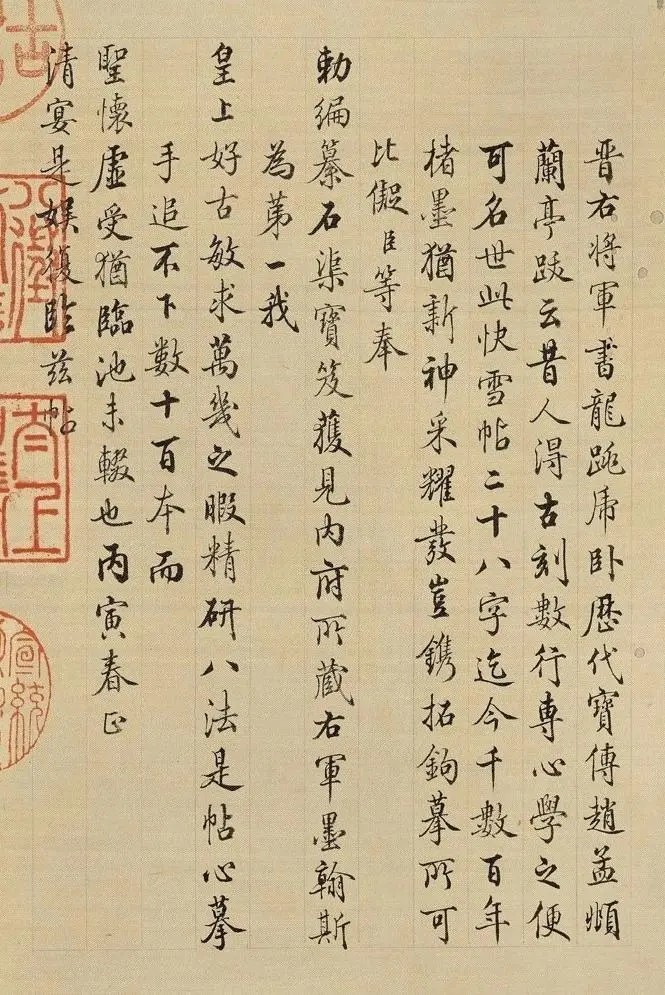 晉右將軍書龍跳虎卧歷代寶傳趙孟頫
蘭亭跋云昔人得古刻數行專心學之便
可名世此快雪帖二十八字迄今千數百年
楮墨猶新神采耀發豈鐫拓鉤摹所可
比儗臣等奉
勅編纂石渠寶笈獲見內府所藏右軍墨翰斯
為第一我
皇上好古敏求萬幾之暇精研八法是帖心摹
手追不下數十百本而
聖懷虛受猶臨池未輟也丙寅春正
清宴是娛復臨茲帖
宣統